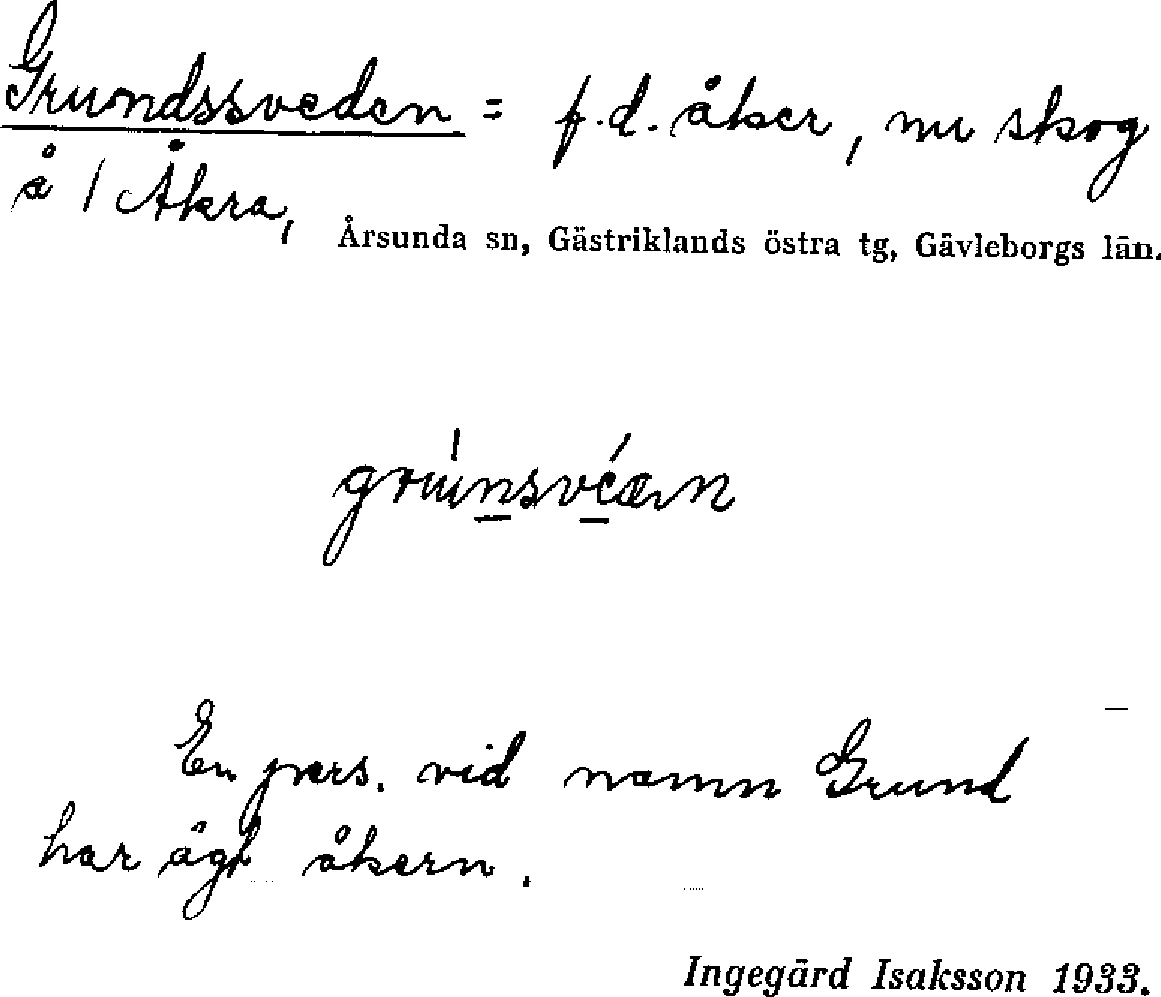 Grundssveden = f.d. åker, nu skog
å 1 Åkra,
Årsunda sn, Gästriklands östra tg, Gävleborgs län.
En pers. vid namn Grund
har ägt åkern.
Ingegärd Isaksson 1933.